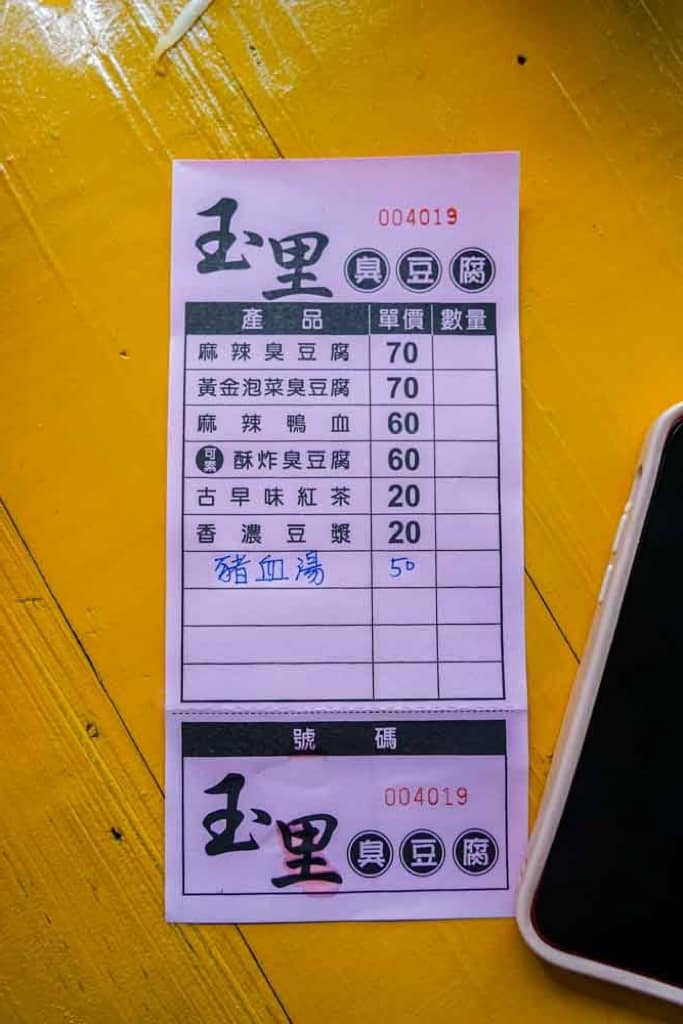 004019
玉里臭豆腐
產品 單價 數量
麻辣臭豆腐 70
黃金泡菜臭豆腐 70
麻辣鴨血 60
可素 酥炸臭豆腐 60
古早味紅茶 20
香濃豆漿 20
豬血湯 50
號碼
004019
玉里臭豆腐